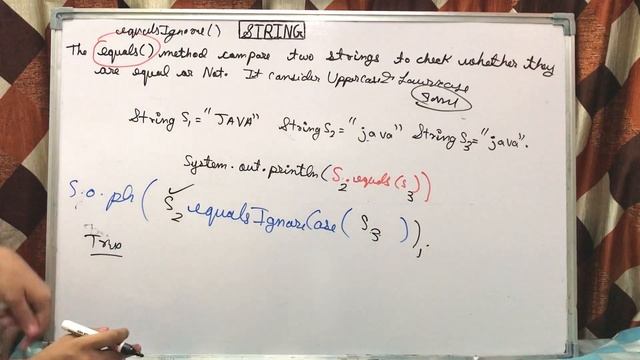 equalsIgnore() STRING
The equals() method compare two strings to check whether they
are equal or Not. It consider Uppercase & Lowercase
Same
String S1 = "JAVA" String S2 = "java" String S3 = "java".
System.out.println(S2.equals(S3))
S.o.pln( S2 equalsIgnoreCase( S3 ));
True